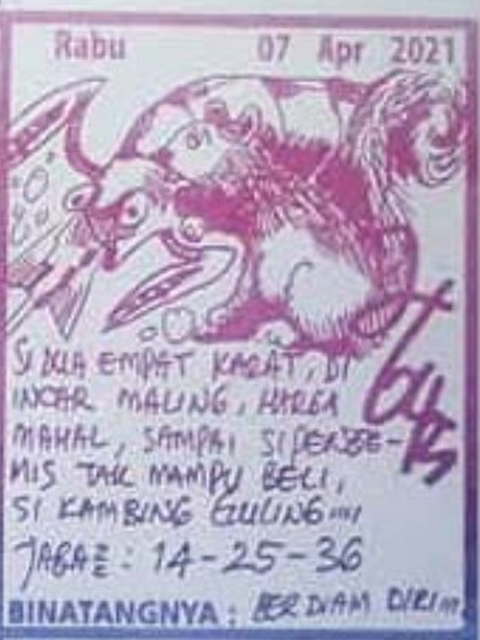 Rabu 07 Apr 2021
SI DUA EMPAT KARAT, DI
INCAR MALING, HARGA
MAHAL, SAMPAI SI PENGE-
MIS TAK MAMPU BELI,
SI KAMBING GULING....
JABAZ : 14-25-36
BINATANGNYA : BERDIAM DIRI...